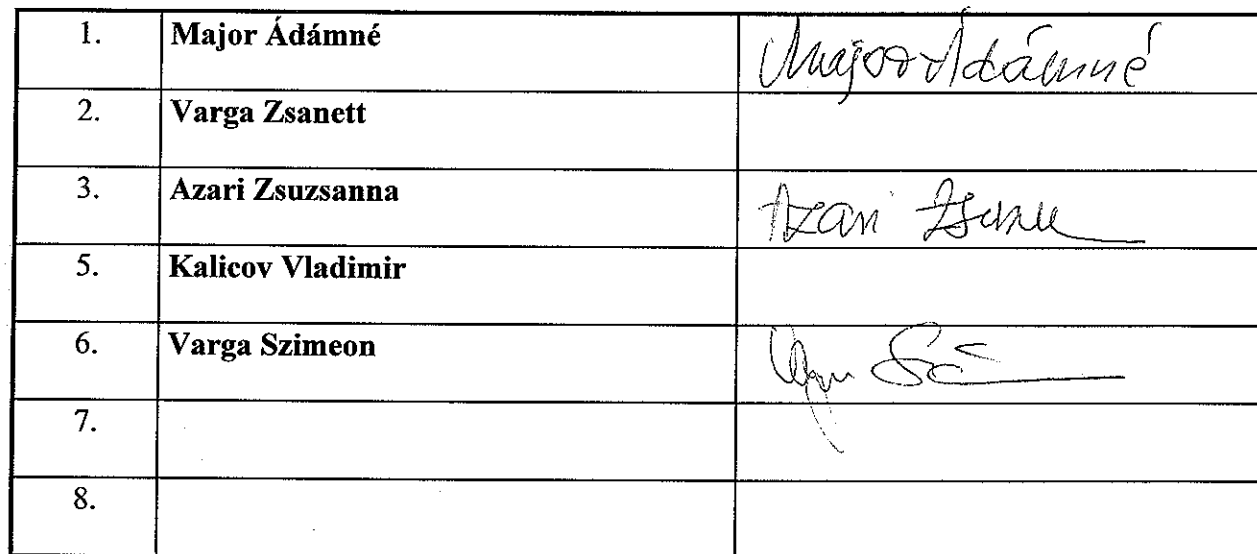 1. Major Ádámné Major Ádámné
2. Varga Zsanett
3. Azari Zsuzsanna Azari
5. Kalicov Vladimir
6. Varga Szimeon
7.
8.